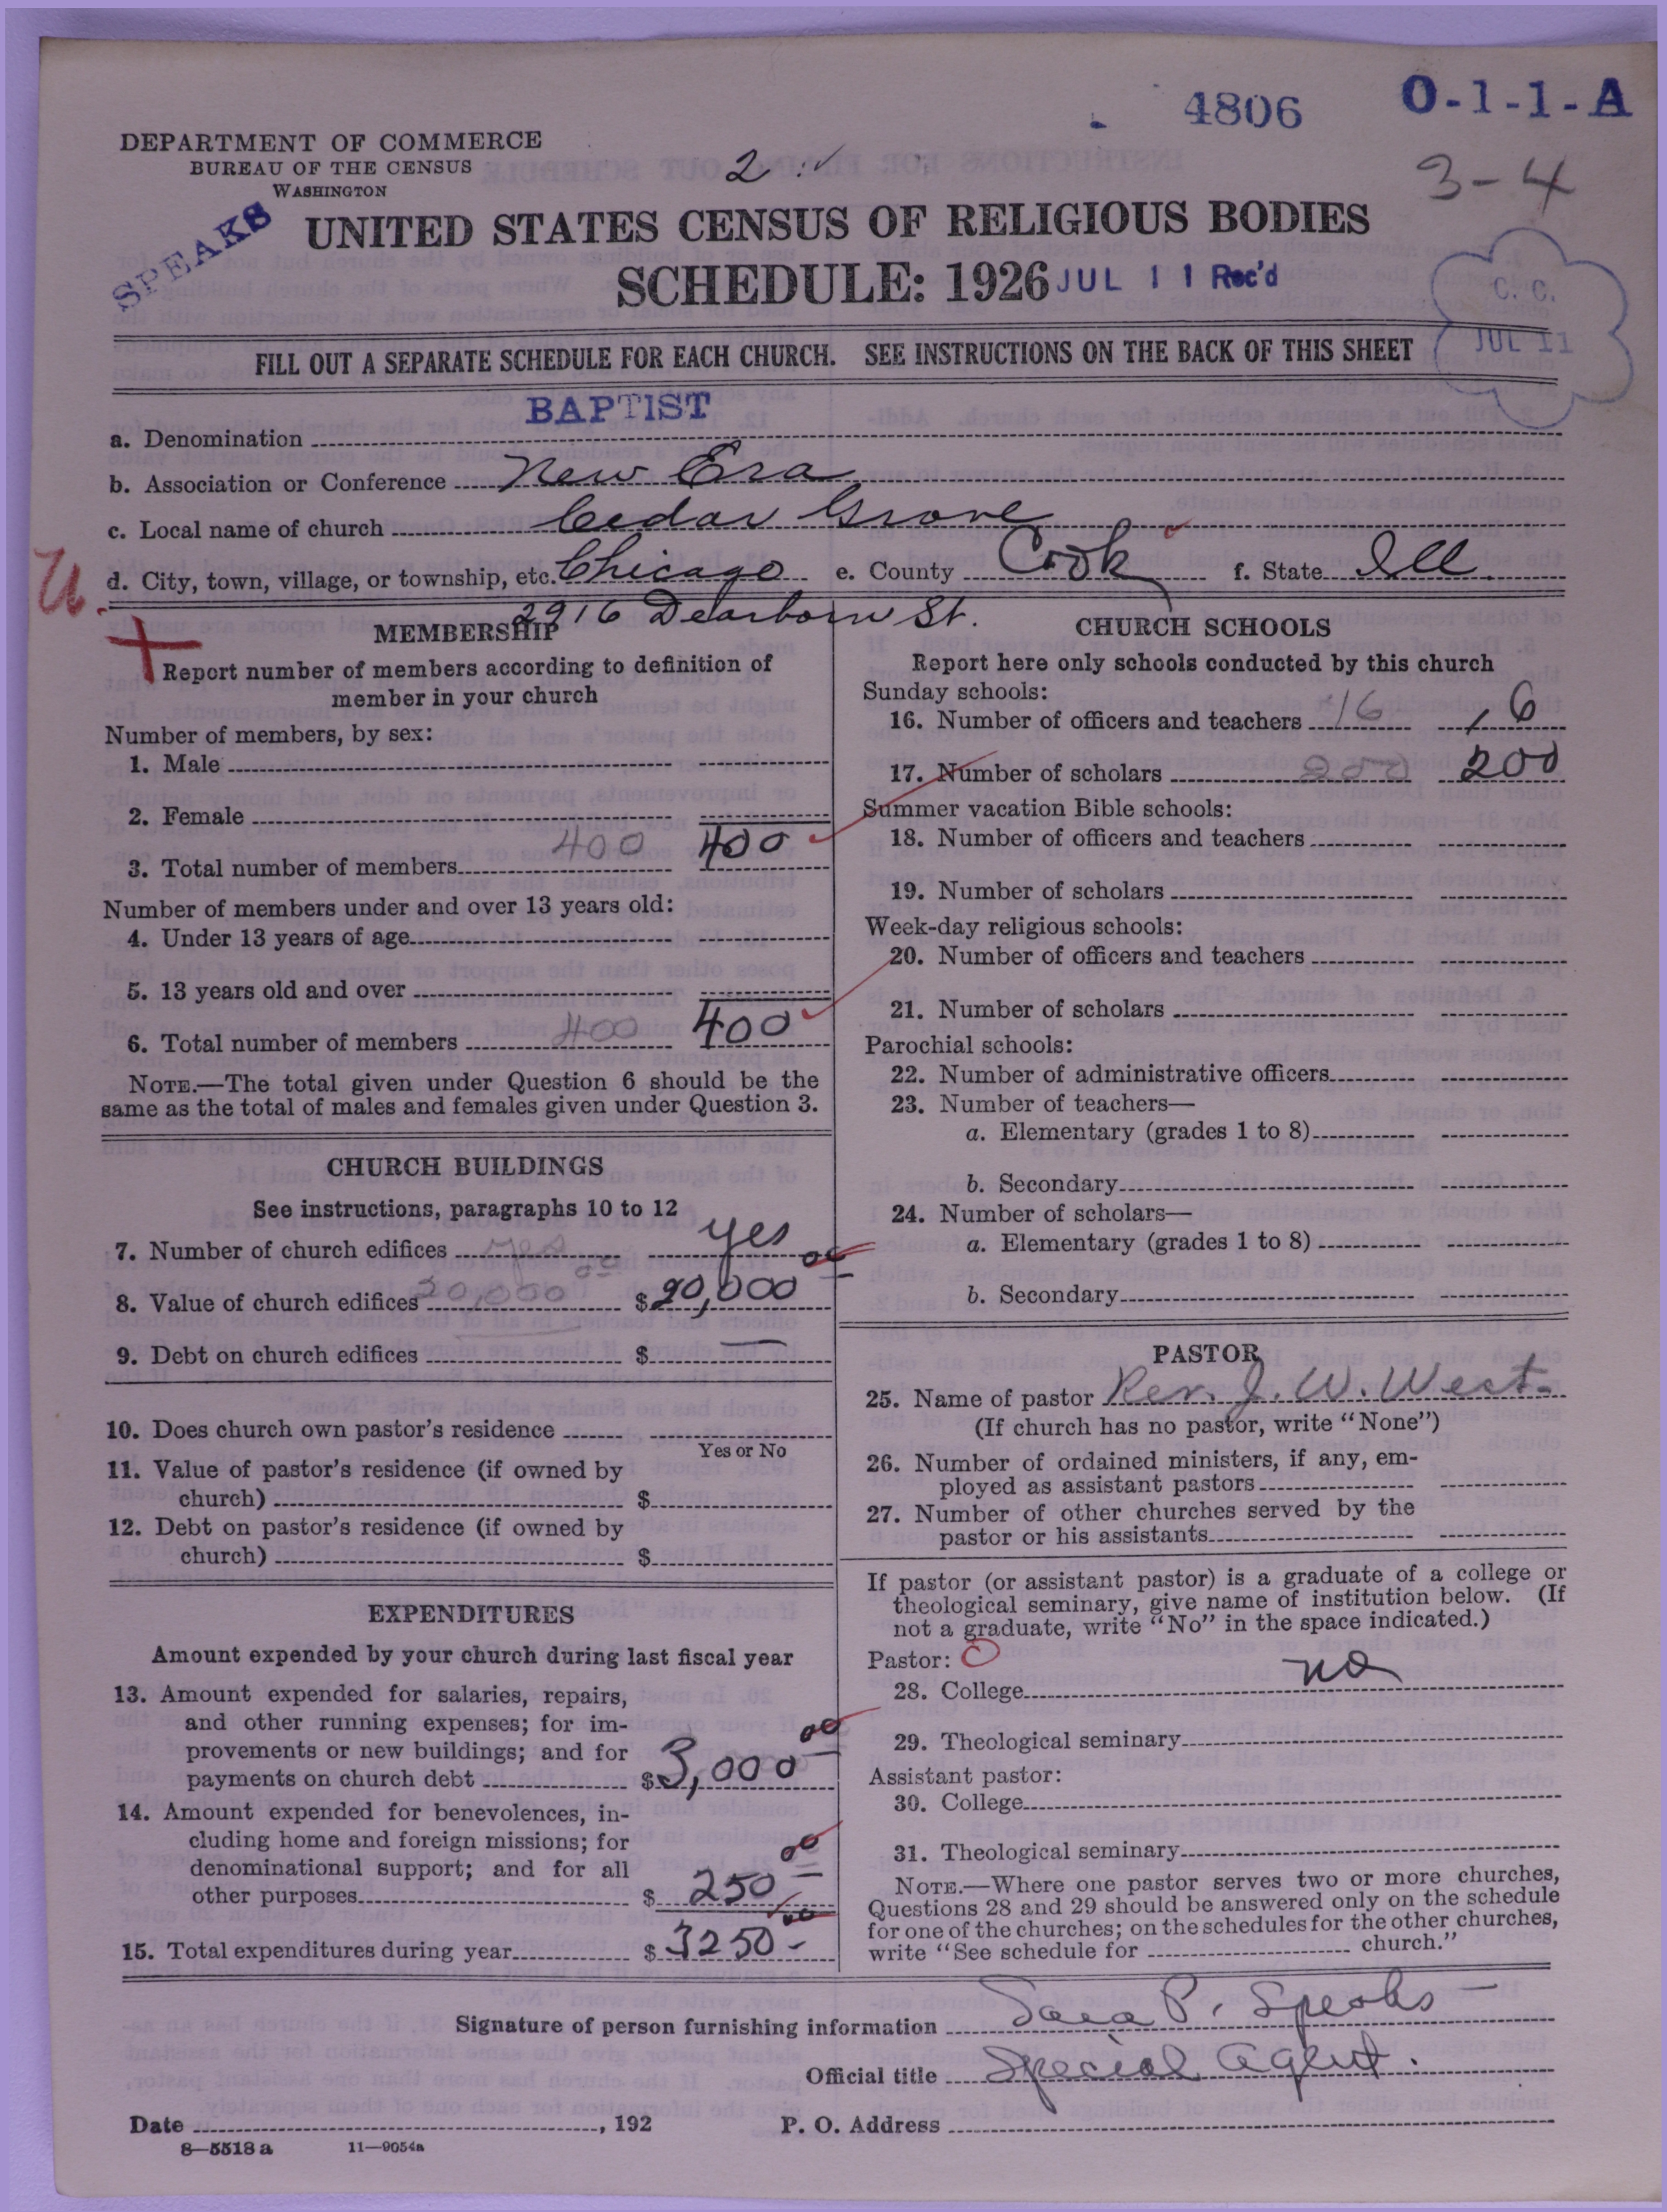 4806 O-1-1-A
DEPARTMENT OF COMMERCE
BUREAU OF THE CENSUS
WASHINGTON
2
3-4
SPEAKS
UNITED STATES CENSUS OF RELIGIOUS BODIES
SCHEDULE: 1926 JUL 11 Rec'd
C. C.
JUL 11
FILL OUT A SEPARATE SCHEDULE FOR EACH CHURCH. SEE INSTRUCTIONS ON THE BACK OF THIS SHEET
a. Denomination BAPTIST
b. Association or Conference New Era
c. Local name of church Cedar Grove
d. City, town, village, or township, etc. Chicago e. County Cook f. State Ill.
U.
2916 Dearborn St.
MEMBERSHIP
Report number of members according to definition of
member in your church
Number of members, by sex:
1. Male
2. Female
3. Total number of members 400 400
Number of members under and over 13 years old:
4. Under 13 years of age
5. 13 years old and over
6. Total number of members 400 400
NOTE.—The total given under Question 6 should be the
same as the total of males and females given under Question 3.
CHURCH BUILDINGS
See instructions, paragraphs 10 to 12
7. Number of church edifices yes yes
8. Value of church edifices 20,000 00 $ 20,000 00
9. Debt on church edifices $ —
10. Does church own pastor's residence
Yes or No
11. Value of pastor's residence (if owned by
church) $
12. Debt on pastor's residence (if owned by
church) $
EXPENDITURES
Amount expended by your church during last fiscal year
13. Amount expended for salaries, repairs,
and other running expenses; for im-
provements or new buildings; and for
payments on church debt $ 3,000 00
14. Amount expended for benevolences, in-
cluding home and foreign missions; for
denominational support; and for all
other purposes $ 250 00
15. Total expenditures during year $ 3250 00
CHURCH SCHOOLS
Report here only schools conducted by this church
Sunday schools:
16. Number of officers and teachers 16 , 6
17. Number of scholars 200 200
Summer vacation Bible schools:
18. Number of officers and teachers
19. Number of scholars
Week-day religious schools:
20. Number of officers and teachers
21. Number of scholars
Parochial schools:
22. Number of administrative officers
23. Number of teachers—
a. Elementary (grades 1 to 8)
b. Secondary
24. Number of scholars—
a. Elementary (grades 1 to 8)
b. Secondary
PASTOR
25. Name of pastor Rev. J. W. West
(If church has no pastor, write "None")
26. Number of ordained ministers, if any, em-
ployed as assistant pastors
27. Number of other churches served by the
pastor or his assistants
If pastor (or assistant pastor) is a graduate of a college or
theological seminary, give name of institution below. (If
not a graduate, write "No" in the space indicated.)
Pastor:
28. College no
29. Theological seminary
Assistant pastor:
30. College
31. Theological seminary
NOTE.—Where one pastor serves two or more churches,
Questions 28 and 29 should be answered only on the schedule
for one of the churches; on the schedules for the other churches,
write "See schedule for church."
Signature of person furnishing information Sara P. Speaks
Official title Special Agent.
Date , 192 P. O. Address
8—5518 a 11—9054a